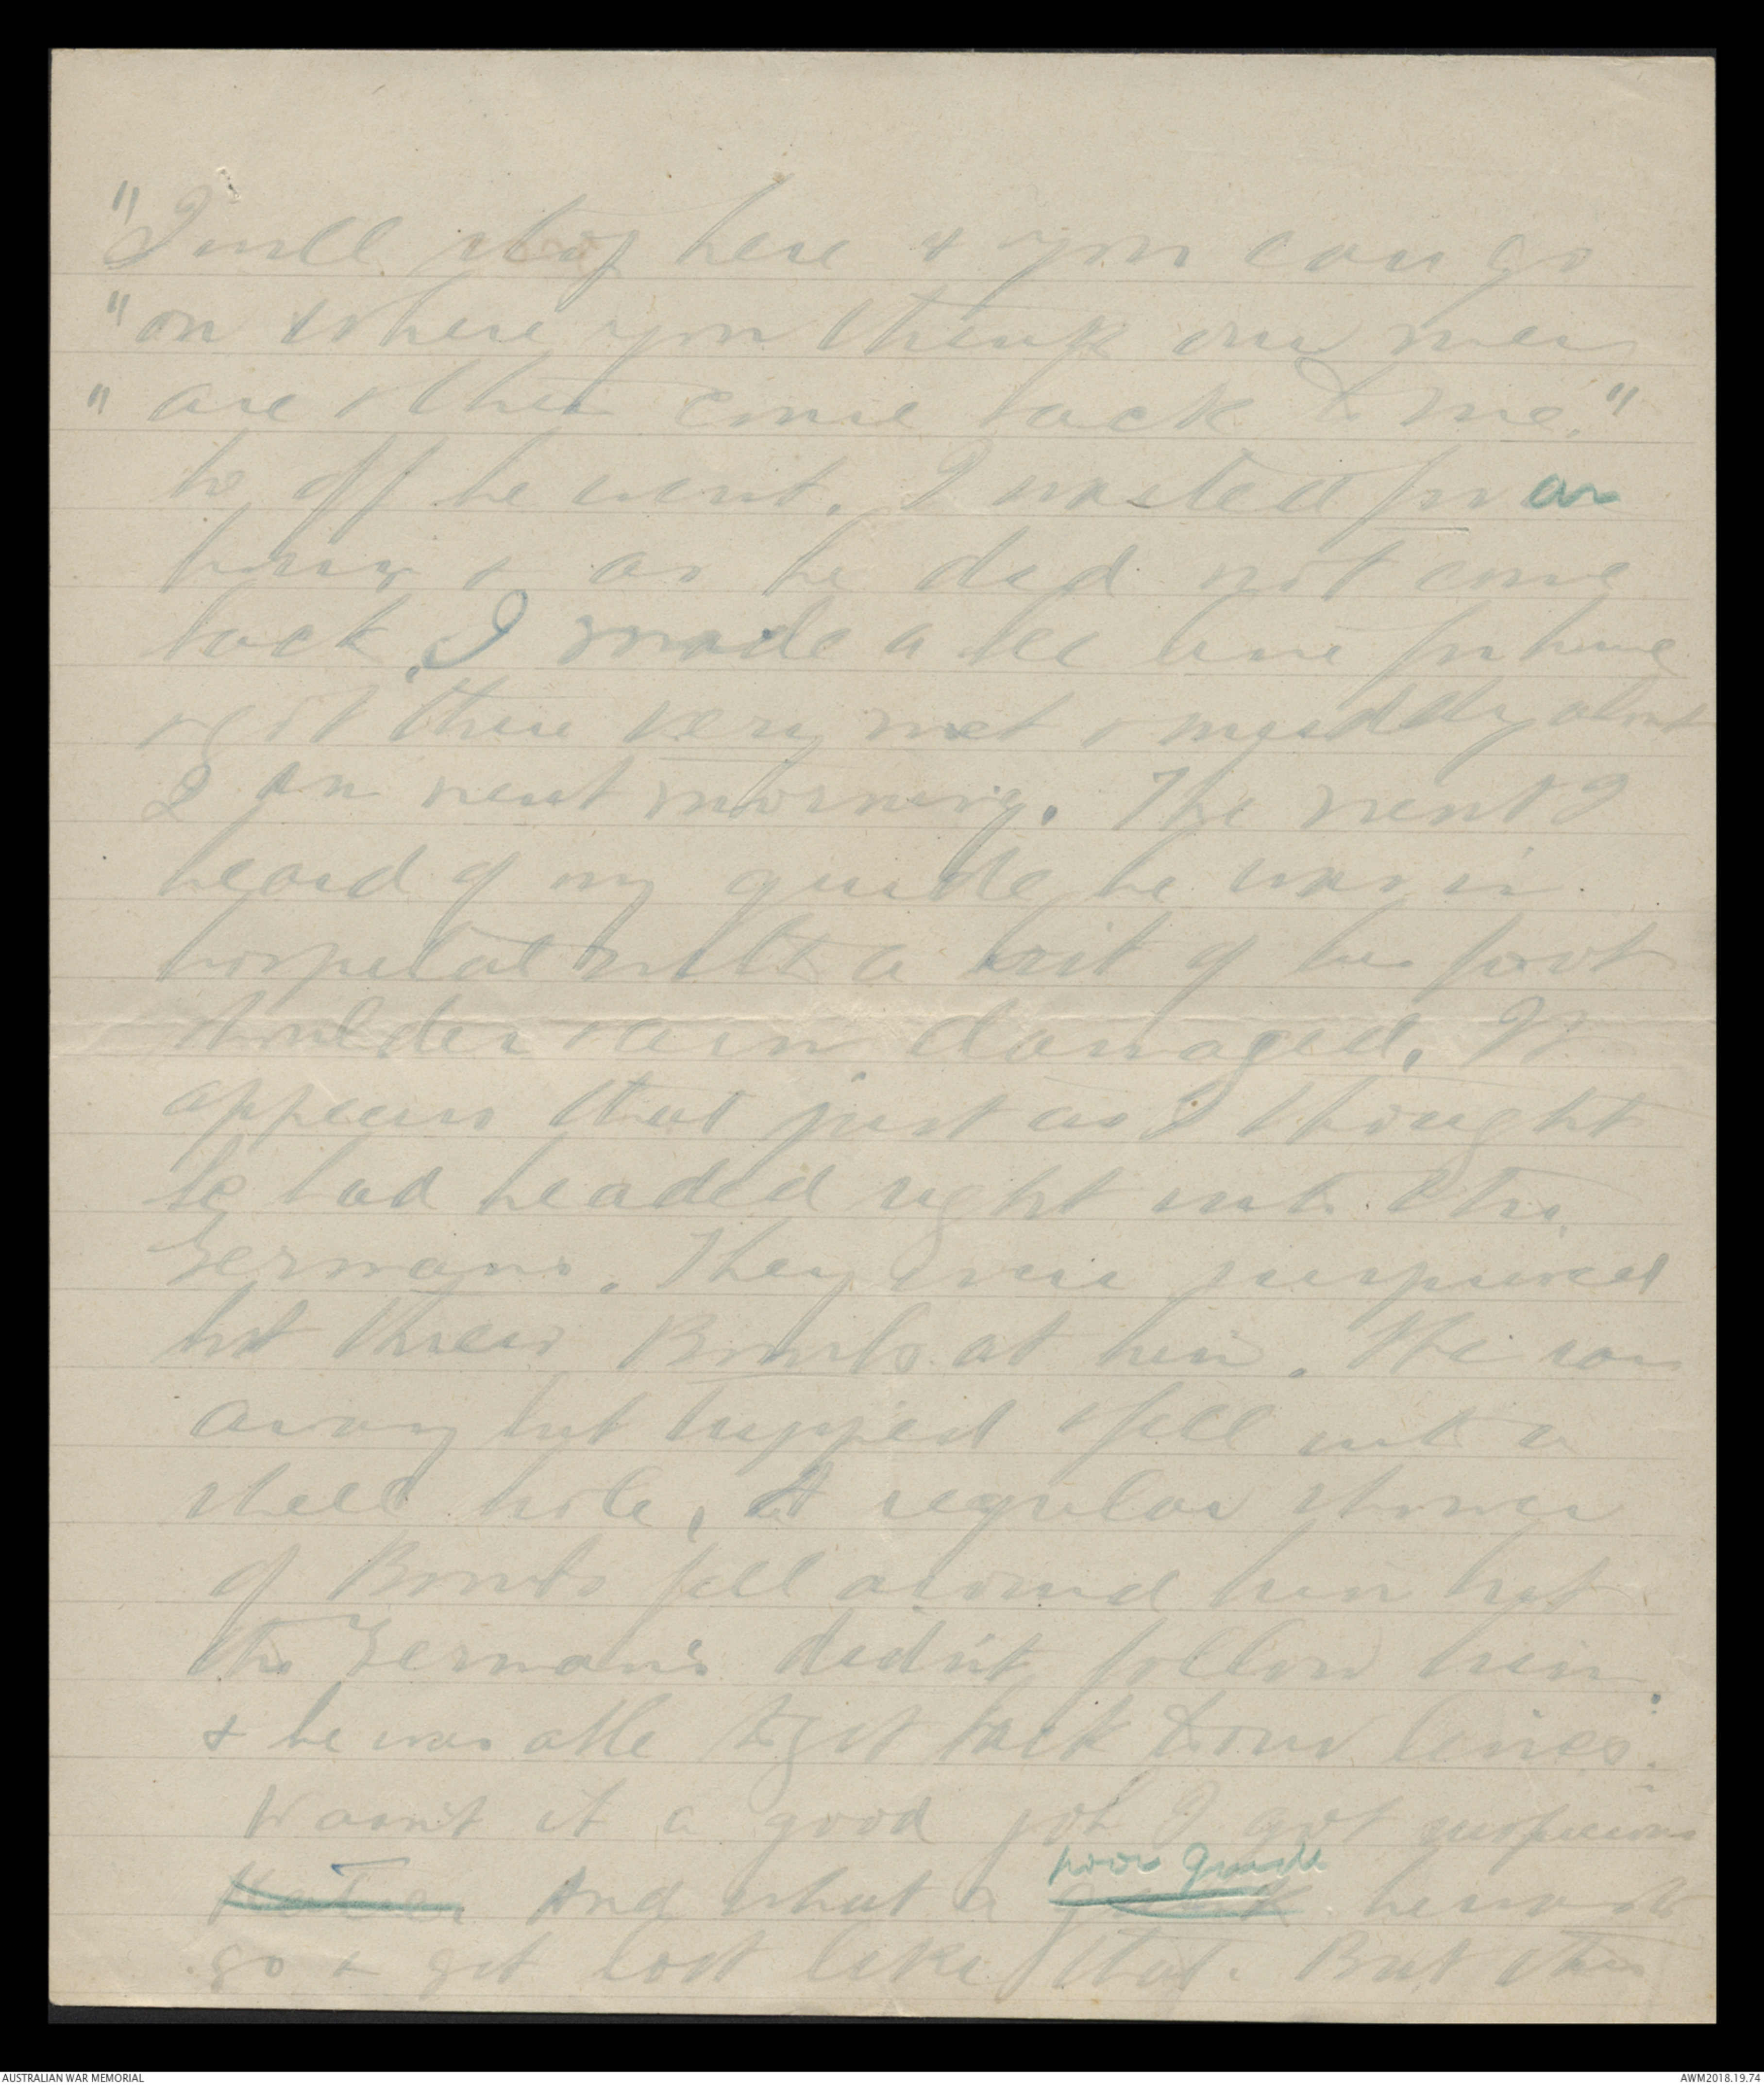 "I will stay here & you can go
"on where you think our men
"are & then come back to me."
So off he went. I waited for an
hour & as he did not come
back, I made a bee line for home
& got there very wet & muddy about
2 am next morning. The next I
heard of my guide he was in
hospital with a bit of his foot
shoulder & arm damaged. It
appears that just as I thought
he had headed right into the
Germans. They were surprised
but threw Bombs at him. He ran
away but tripped & fell into a
shell hole, A regular shower
of Bombs fell around him but
the Germans didn't follow him.
& he was able to get back to our lines.
Wasn't it a good job I got suspicious
poor guide
And what a he was to
go & get lost like that. But this
AUSTRALIAN WAR MEMORIAL
AWM2018.19.74